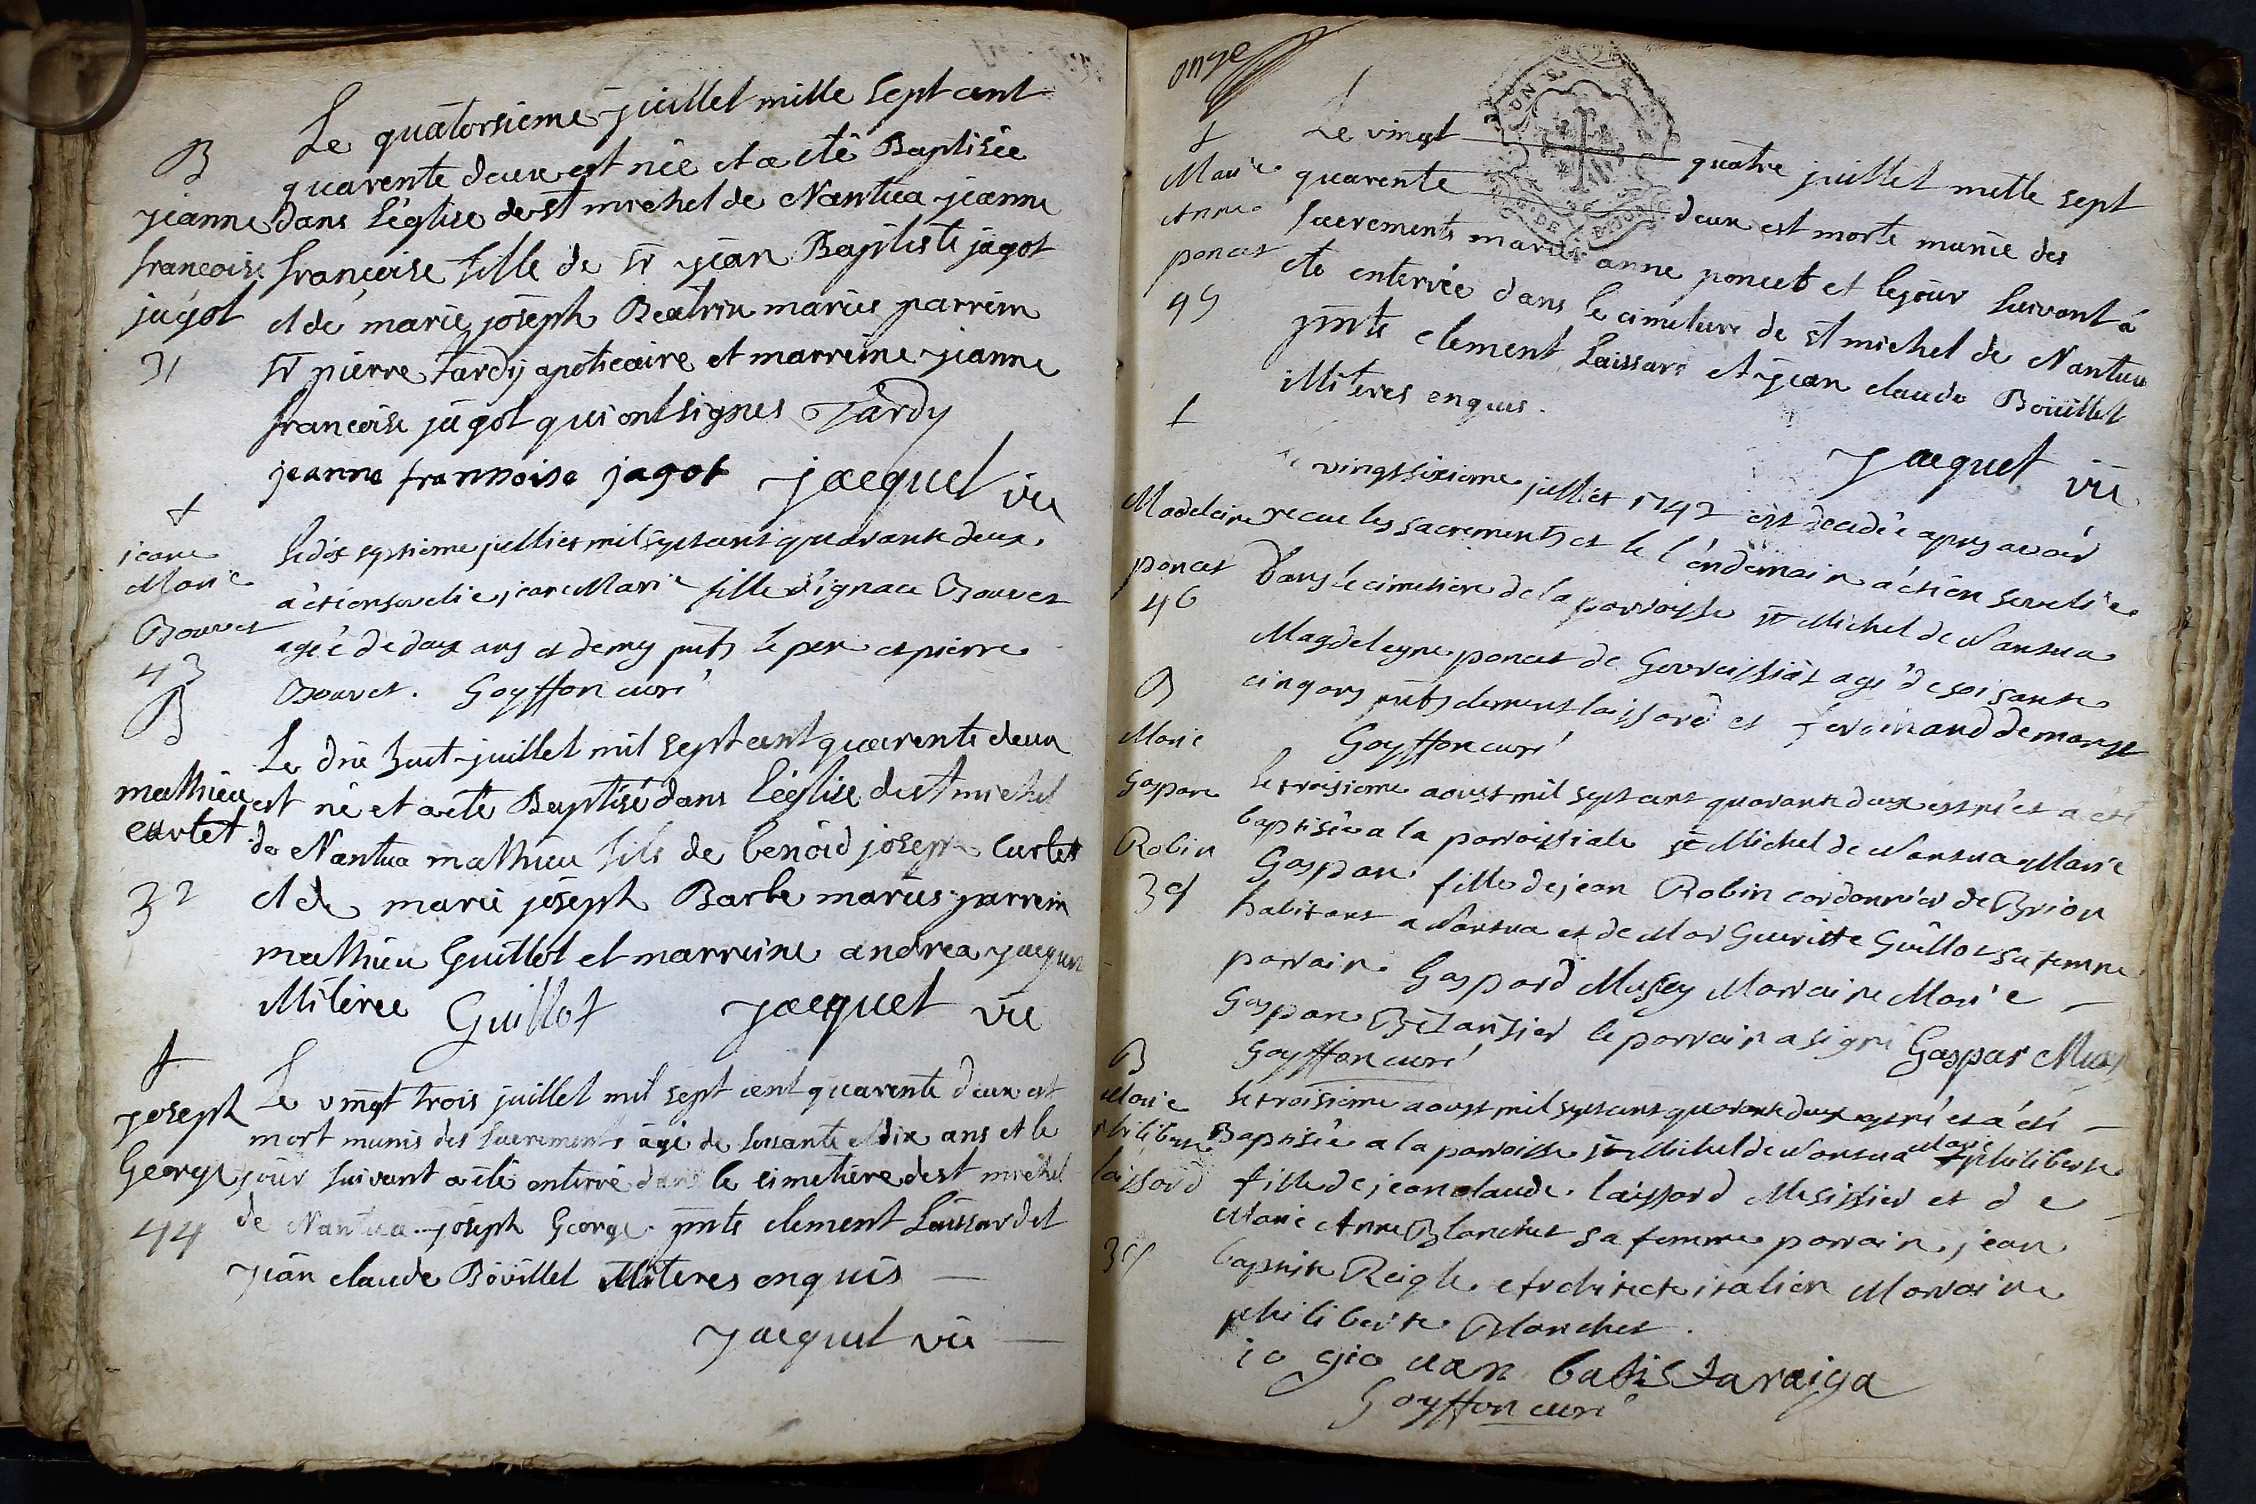 B
jeanne
francoise
jagot
31
Le quatorsieme juillet mille sept cent
quarente deux est née et a eté Baptisée
dans l'église de st michel de Nantua jeanne
francoise fille de sr jean Baptiste jagot
et de marie joseph Beatrix mariés parrein
sr pierre tardy apoticaire et marreine jeanne
francoise jagot qui ont signés Tardy
jeanne fransoise jagot jacquet vic
+
jeane
Marie
Bouvet
43
le dix septieme julliet mil sept cent quarante deux
a été ensevelie jeane Marie fille d'ignace Bouvet
agée de deux ans et demy pnts le pere et pierre
Bouvet. Goyffon curé
B
mathieu
curtet
32
Le dix huit juillet mil sept cent quarente deux
est né et a eté Baptisé dans l'église de st michel
de Nantua mathieu fils de benoid joseph Curtet
et de marie joseph Barbe mariés parrein
mathieu Guillot et marreine andrea jacquet
illiterée Guillot jacquet vic
+
joseph
George
44
Le vingt trois juillet mil sept cent quarente deux est
mort munis des sacrements agé de soissante et dix ans et le
jour suivant a eté enterré dans le cimetiere de st michel
de Nantua joseph George pnts clement Laissard et
jean claude Bovillet illiteres enquis
jacquet vic
onze
+
Marie
Anne
poncet
45
Le vingt quatre juillet mille sept
quarente deux est morte munie des
sacrements marie anne poncet et le jour suivant a
eté enterrée dans le cimetiere de st michel de Nantua
pnts clement Laissard et jean claude Bouillet
illiteres enquis.
jacquet vic
+
Madeleine
poncet
46
vingt sixieme julliet 1742 est decedée apres avoir
recue les sacrements et le l'endemain a été en sevelie
dans le cimetiere de la parroisse st Michel de Nantua
Magdeleyne poncet de agé de soisante
cinq ans pnts clement laissard et ferdinand
Goyffon curé
B
Marie
Gaspare
Robin
34
le troisieme aoust mil sept cent quarante deux est né et a été
baptisée a la parroissiale st Michel de Nantua Marie
Gaspare fille de jean Robin cordonnier de Brion
habitant a Nantua et de Mar Gueritte Guillot sa femme
parrain Gaspard Musy Marraine Marie
Gaspare le parrain a signé Gaspar Musy
Goyffon curé
B
Marie
philiberte
laissard
le troisieme aoust mil sept cent quarante deux est né et a été
Baptisée a la parroisse st Michel de Nantua Marie philiberte
fille de jean claude laissard et de
Marie Anne Blanchet sa femme parrain jean
baptiste Reigle Architecte italien Marraine
philiberte Blanchet.
io gio uan batistaraiga
Goyffon curé